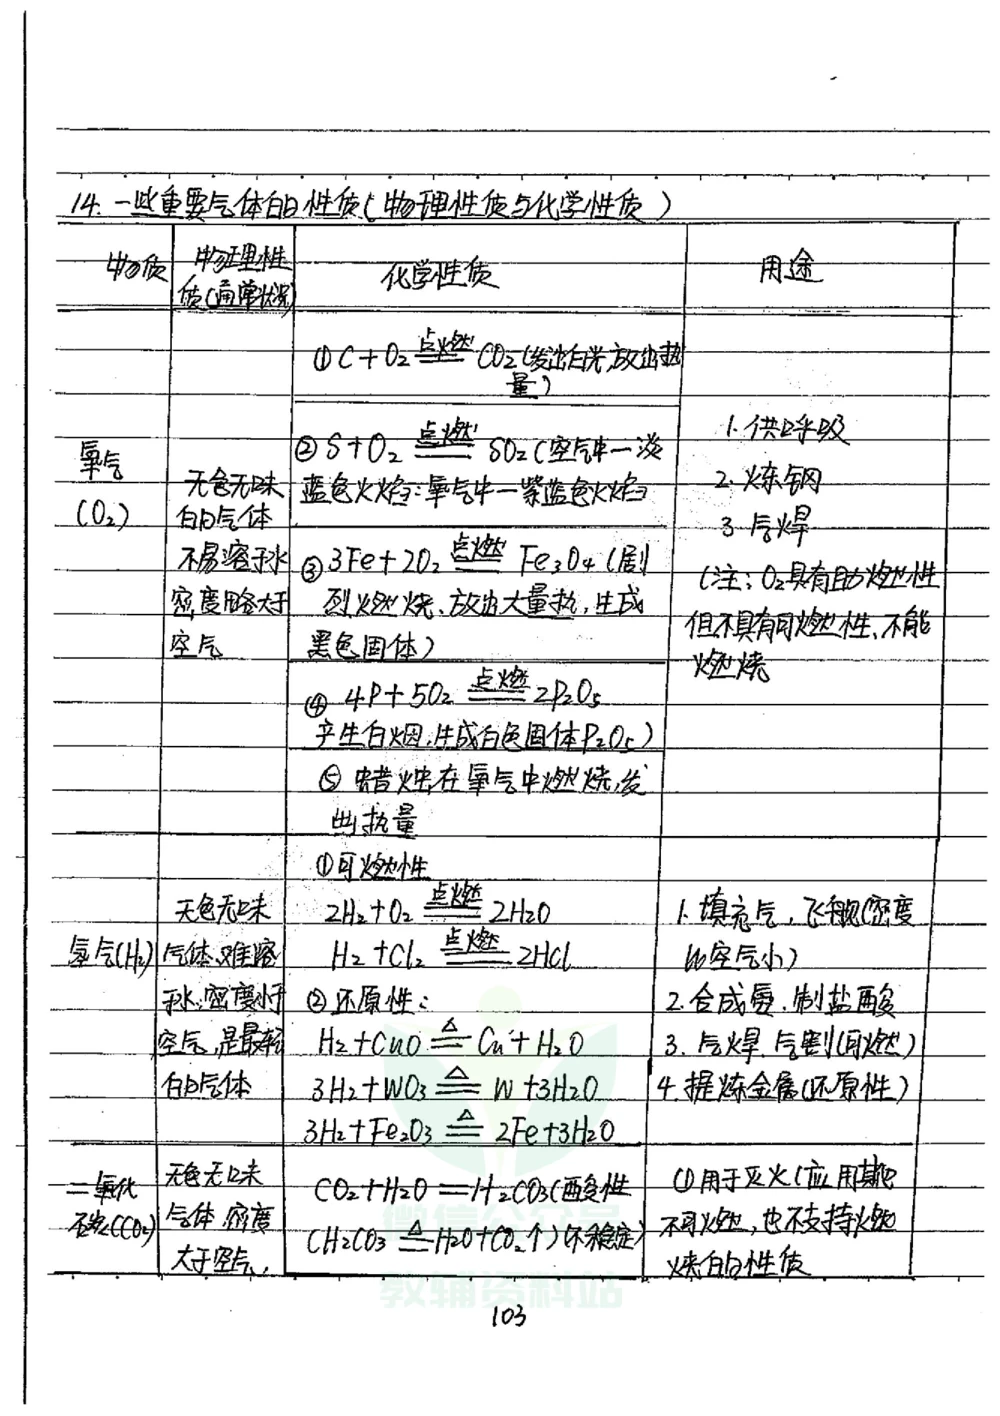 14. 一些重要气体的性质(物理性质与化学性质)
物质
物理性
质(通常状况)
化学性质
用途
氧气
(O₂)
无色无味
的气体
不易溶于水
密度略大于
空气
①C+O₂ 点燃 CO₂(发出白光,放出热
量)
②S+O₂ 点燃 SO₂(空气中—淡
蓝色火焰;氧气中—紫蓝色火焰
③3Fe+2O₂ 点燃 Fe₃O₄(剧
烈燃烧、放出大量热,生成
黑色固体)
④ 4P+5O₂ 点燃 2P₂O₅
产生白烟,生成白色固体P₂O₅)
⑤ 蜡烛在氧气中燃烧,发
出热量
1. 供呼吸
2. 炼钢
3. 气焊
(注:O₂具有助燃性
但不具有可燃性、不能
燃烧
氢气(H₂)
无色无味
气体,难溶
于水,密度小于
空气,是最轻
的气体
①可燃性
2H₂+O₂ 点燃 2H₂O
H₂+Cl₂ 点燃 2HCl
②还原性:
H₂+CuO △ Cu+H₂O
3H₂+WO₃ △ W+3H₂O
3H₂+Fe₂O₃ △ 2Fe+3H₂O
1. 填充气,飞舰(密度
比空气小)
2. 合成氨,制盐酸
3. 气焊 气割(可燃)
4. 提炼金属(还原性)
二氧化
碳(CO₂)
无色无味
气体 密度
大于空气,
CO₂+H₂O=H₂CO₃(酸性
(H₂CO₃ △ H₂O+CO₂↑)(不稳定)
①用于灭火(应用其
不可燃,也不支持燃
烧的性质
微信公众号
教辅资料站
103